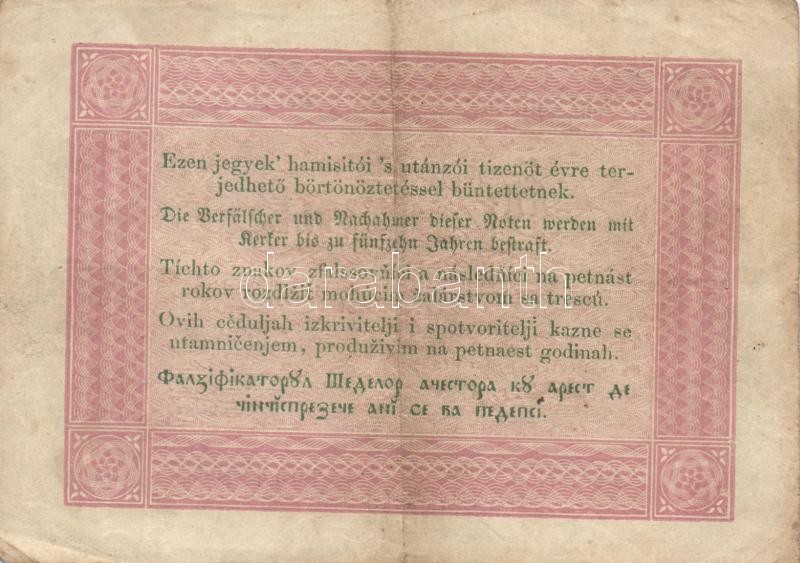 Ezen jegyek’ hamisitói ’s utánzói tizenöt évre ter-
jedhető börtönöztetéssel büntettetnek.
Die Verfälscher und Nachahmer dieser Noten werden mit
Kerker bis zu fünfzehn Jahren bestraft.
Tíchto znakov zfalssovňíci a následňíci na petnást
rokov rozdĺžit žalárstvom sa trescú.
darabanth
Ovih cĕduljah izkrivitelji i spotvoritelji kazne se
utamničenjem, produživim na petnaest godinah.
Фалꙁіфікаторꙋл Шеделор ачестора кꙋ арест де
чінчіспрезече ані се ва педепсі.